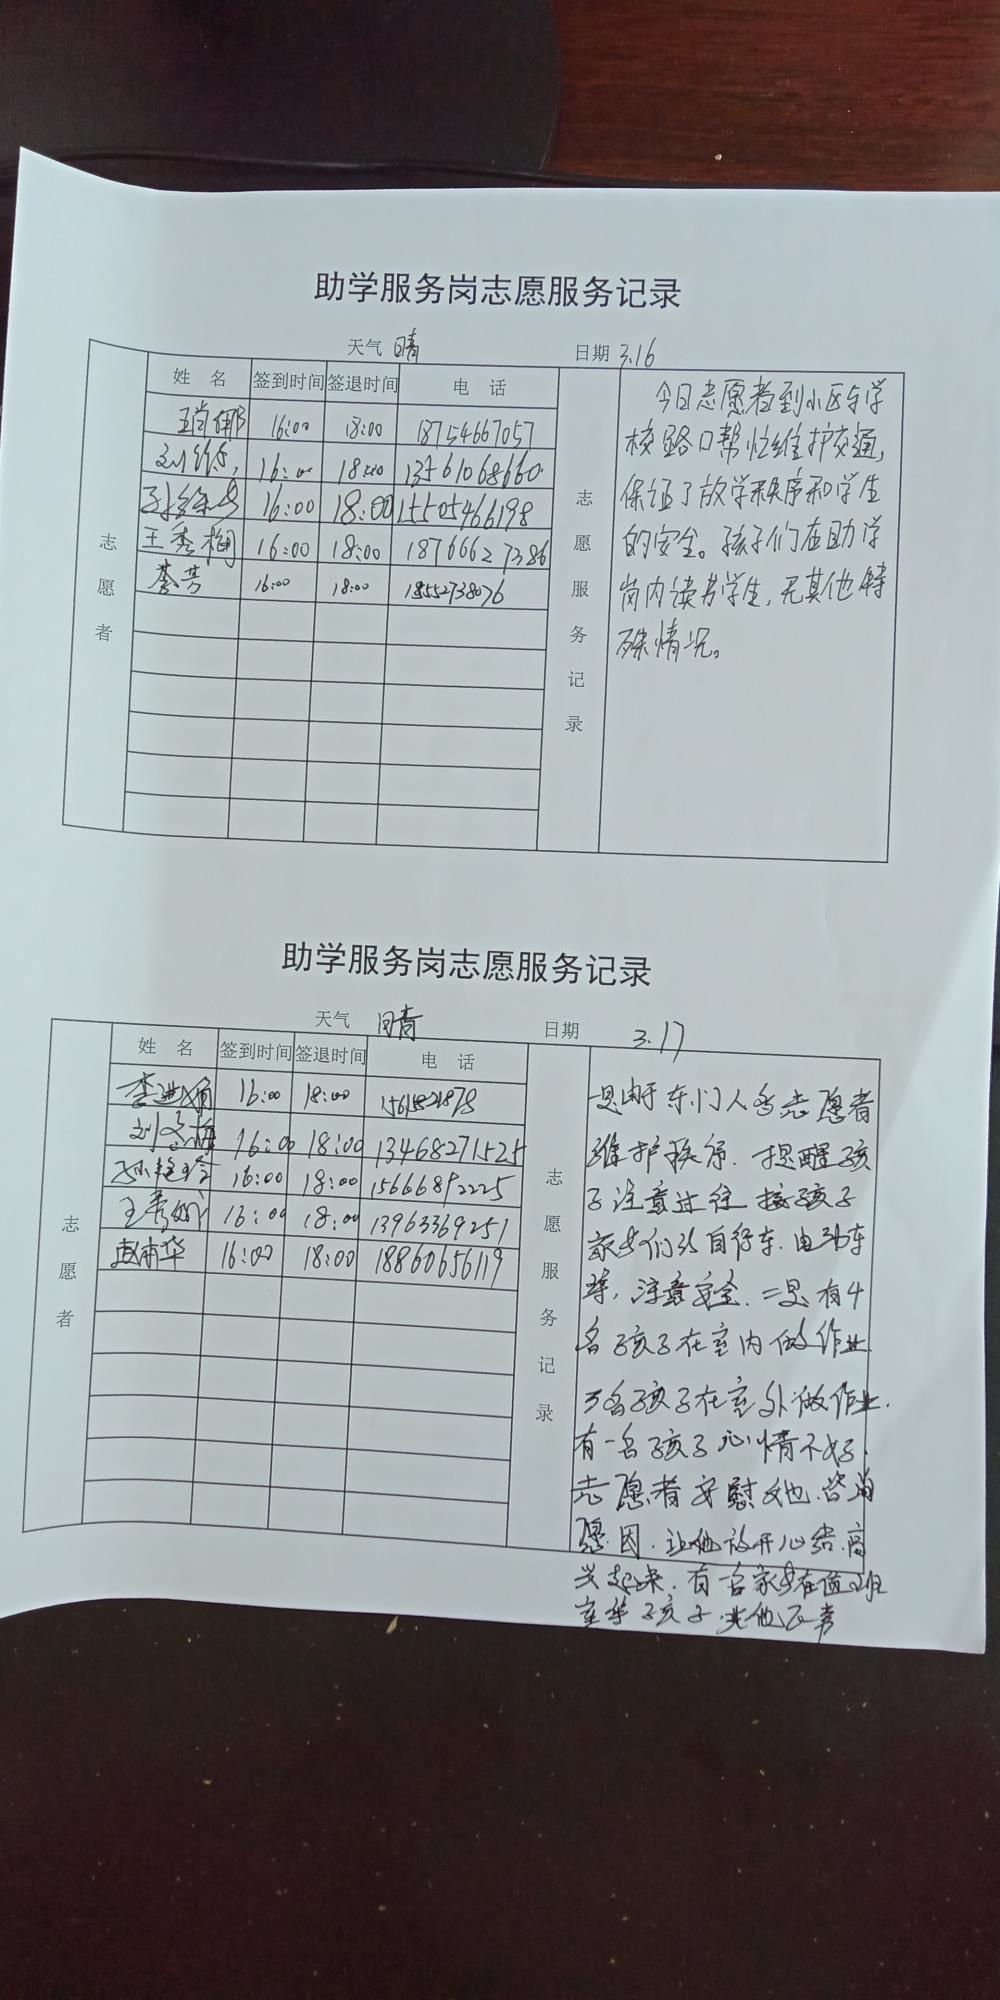 助学服务岗志愿服务记录
天气 晴 日期 3.16
志愿者
姓 名 签到时间 签退时间 电 话
16:00 18:00 18754667057
16:00 18:00 13561068660
16:00 18:00 15505466198
王秀梅 16:00 18:00 18766627386
16:00 18:00 18552738076
志愿服务记录
今日志愿者到小区与学
校路口帮忙维护交通,
保证了放学秩序和学生
的安全。孩子们在助学
岗内读书学生,无其他特
殊情况。
助学服务岗志愿服务记录
天气 晴 日期 3.17
志愿者
姓 名 签到时间 签退时间 电 话
16:00 18:00
16:00 18:00 13468271525
16:00 18:00 15666892225
16:00 18:00 13963369251
16:00 18:00 18860656119
志愿服务记录
一是由于东门人多志愿者
维护秩序.提醒孩
子注意过往接孩子
家长们的自行车.电动车
等,注意安全.二是有4
名孩子在室内做作业
3名孩子在室外做作业.
有一名孩子心情不好.
志愿者安慰她.咨询
原因.让她放开心结.高
兴起来.有一名家长在值班
室等孩子.其他正常